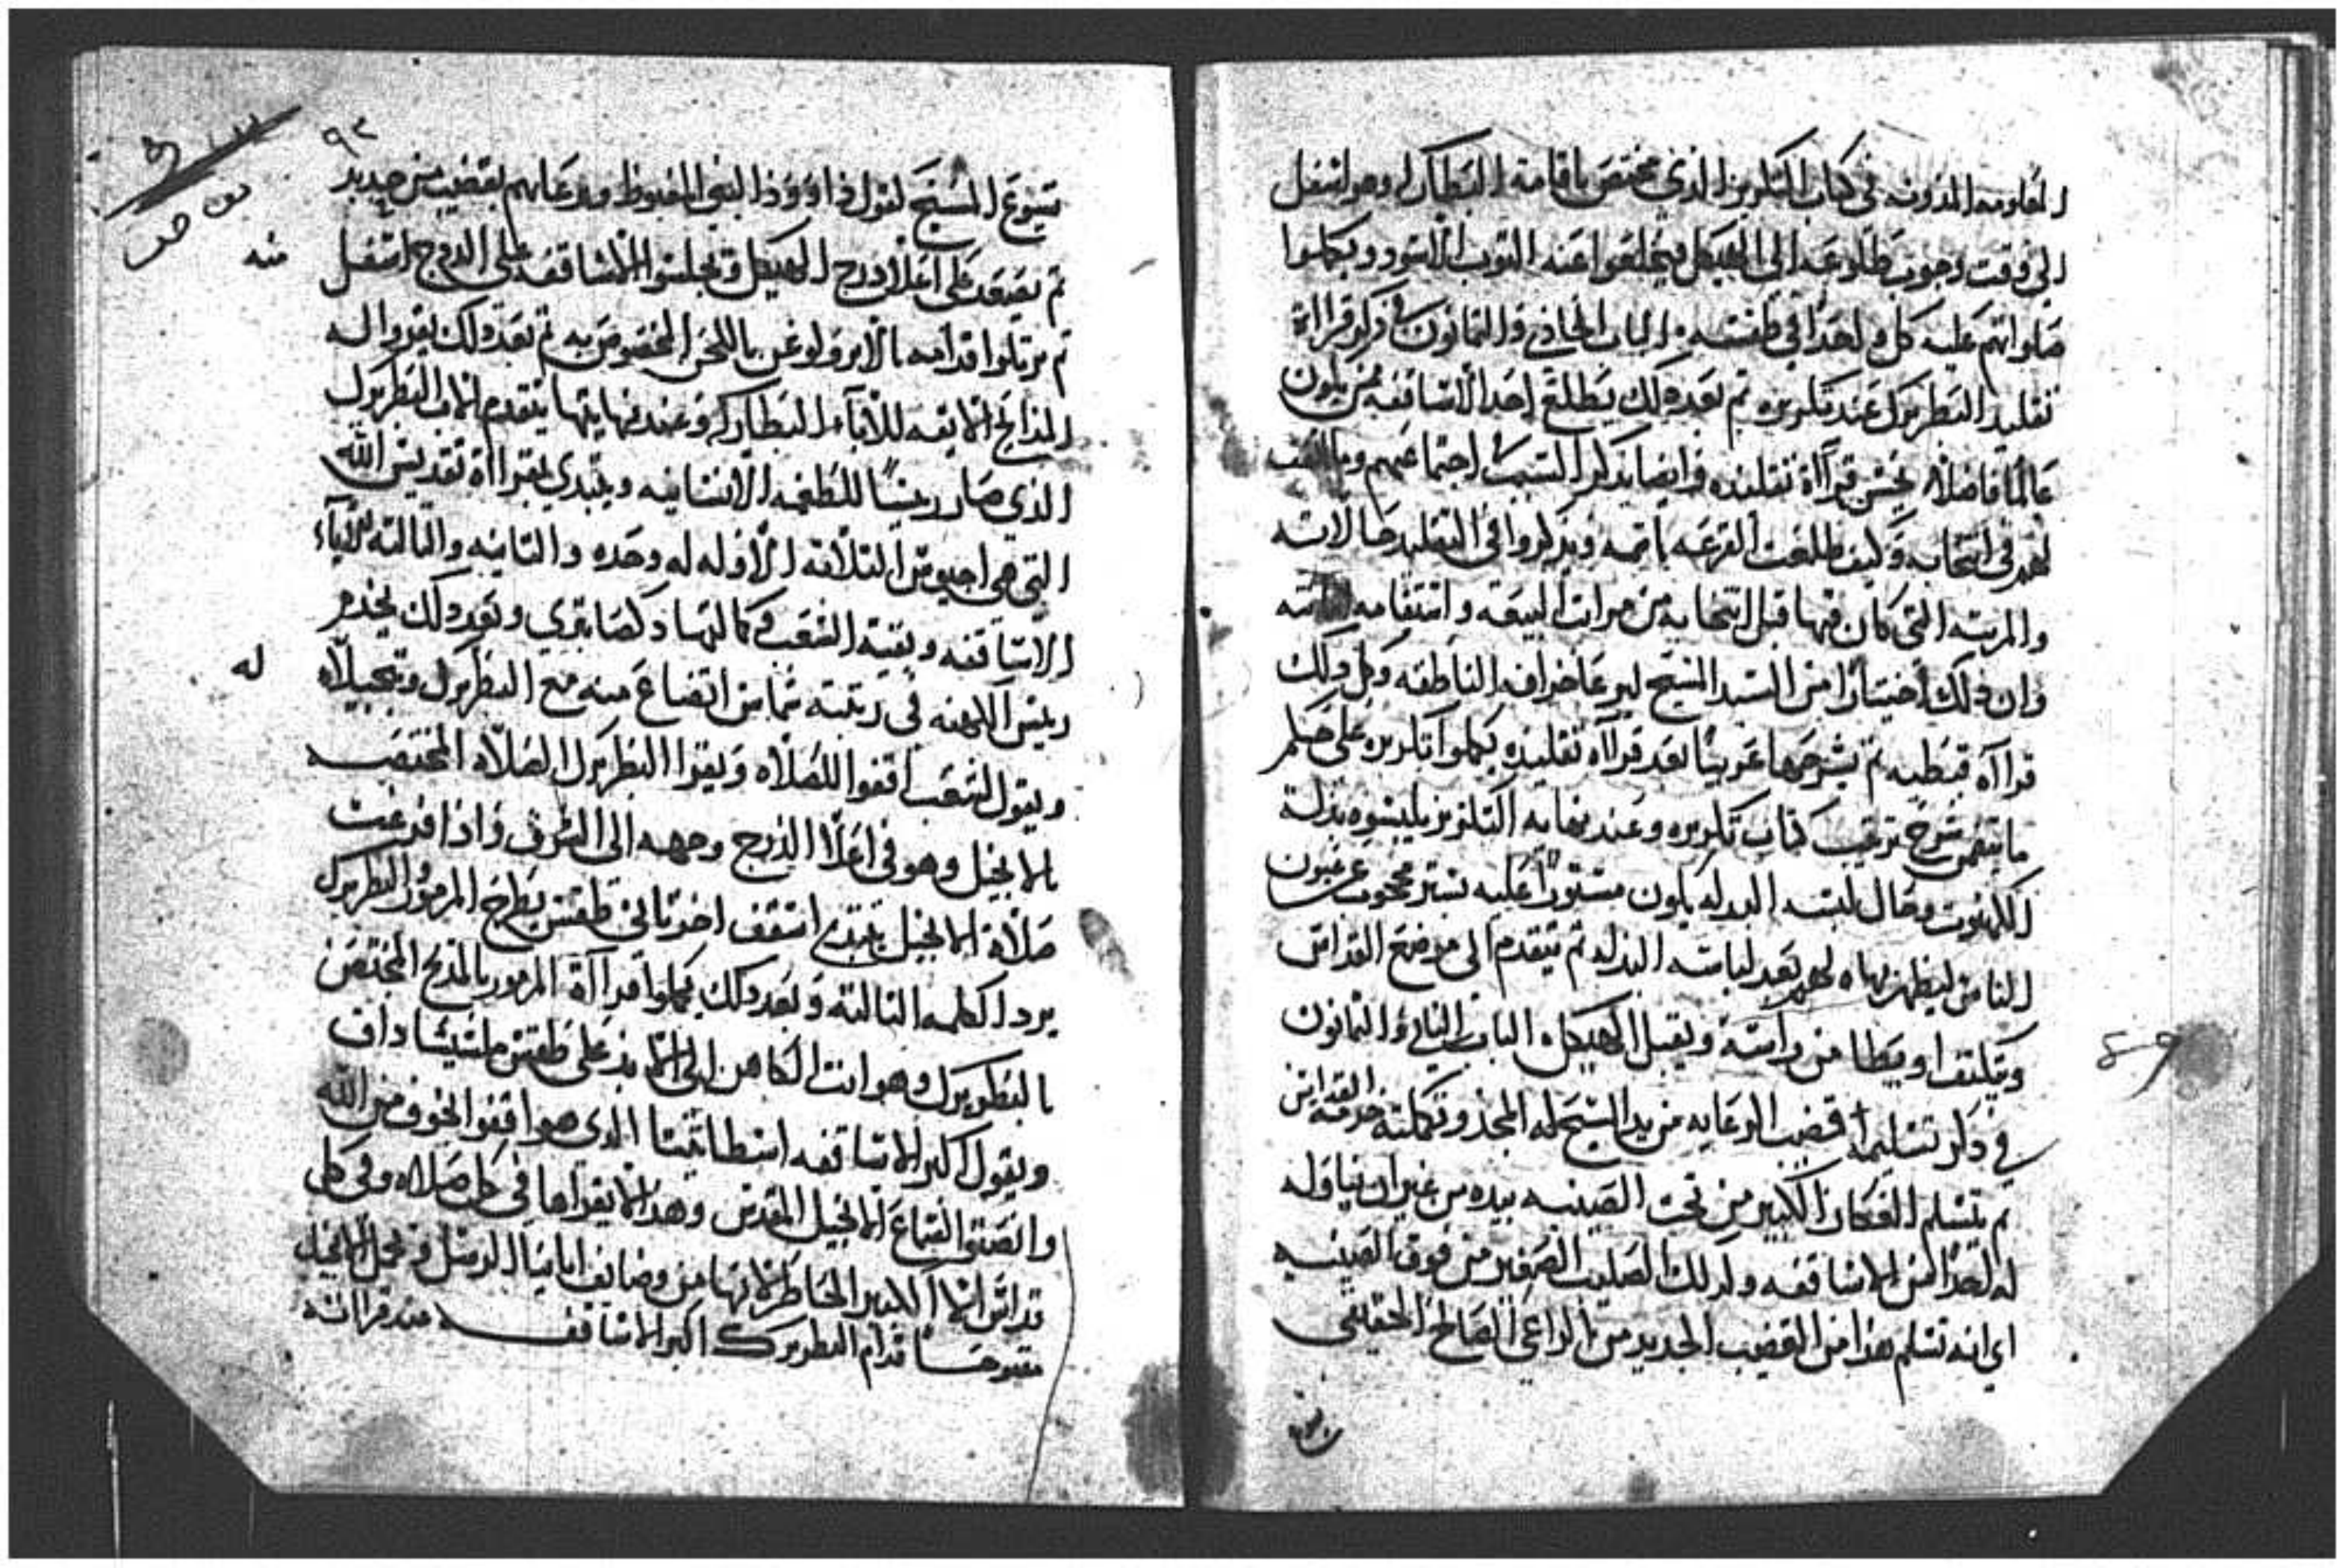 المعلومه المدونه في كتاب التكريز الذي مختص باقامة البطاركه وهو اسفل
الي وقت وجوب طلوعه الى الهيكل فيخلعوا عنه التوب الاسود ويكملوا
صلواتهم عليه كل واحدا في طقسه الباب الحادي والتمانون في ذكر قرااة
تقليد البطريرك عند تكريزه تم بعد دلك يطلع احد الاساقفه ممن يكون
عالما فاضلا يحسن قرااة تقليده وايضا يذكر السبب اجتماعهم وما
لهم في انتخابه وكيف طلعت القرعه باسمه ويذكروا في التقليد حالاته
والمرتبه التي كان فيها قبل انتخابه من مراتب البيعه واستقامه
وان دلك اختيارا من السيد المسيح ليرعا خرافه الناطقه وكل دلك
قرااه قبطيه تم يشرحوها عربيا بعد قرااه تقليده يكملوا تكريزه على حكم
ما يتضمن شرح ترتيب كتاب تكريزه وعند نهايه التكريز يلبسوه بدلة
الكهنوت وحال لبسه البدله يكون مستورا عليه بستر محجوب عن عيون
الناس ليظهر بهاه لهم بعد لباسه البدله تم يتقدم الى موضع القداس
ويكشف اويطا من راسه ويقبل الهيكل الباب التاني والتمانون
في ذكر تسليمه قضيب الرعايه من يد المسيح له المجد وتكملته خدمة القداس
تم يتسلم العكاز الكبير من تحت الصينيه بيده من غير ان يناوله
له احدا من الاساقفه وكدلك الصليب الصغير من فوق الصينيه
اي انه تسلم هذا من القضيب الجديد من الراعي الصالح الحقيقي
٩٢
يسوع المسيح لقول داوود النبي المغبوط ويرعاهم بقضيب من حديد
تم يصعد على اعلا درج الهيكل ويجلسوا الاساقفه على الدرج اسفل
منه
تم يرتلوا قدامه بالابرولوغس باللحن المخصوص به تم بعد دلك يقروا له
المدايح الايقه للاباء البطاركه وعند نهايتها يتقدم الاب البطريرك
الذي صار ريسا للطغمه الانسانيه ويبتدي بقرااة تقديس الله
التي هي اجيوس التلاته الاوله له وحده والتانيه والتالته للاباء
الاساقفه وبقية الشعب وكمالتها دكصابتري وبعد دلك يخدم
ريس الكهنه في رتبته شماس اتضاع منه مع البطريرك وتبجيلا
له
ويقول الشعب اقفوا للصلاه ويقرا البطريرك الصلاه المختصه
بالانجيل وهو في اعلا الدرج ووجهه الى الشرق واذا فرغت
صلاة الانجيل يبتدي اسقف اخر تاني طقس يطرح المزمور والبطريرك
يرد الكلمه التالته وبعد دلك يكملوا قرااة المزمور بالمديح المختص
بالبطريرك وهو انت الكاهن الى الابد على طقس ملشيشاداق
ويقول اكبر الاساقفه اسطاتيتا الدي هو اقفوا بخوف من الله
وانصتوا لسماع الانجيل المقدس وهذا لا يقراها في كل صلاه وفي كل
قداس الا الكبير الحاضر لانها من وضايف ابايـنا الرسل ويحمل الانجيل
مفتوحا قدام البطريرك اكبر الاساقفه عند قراته